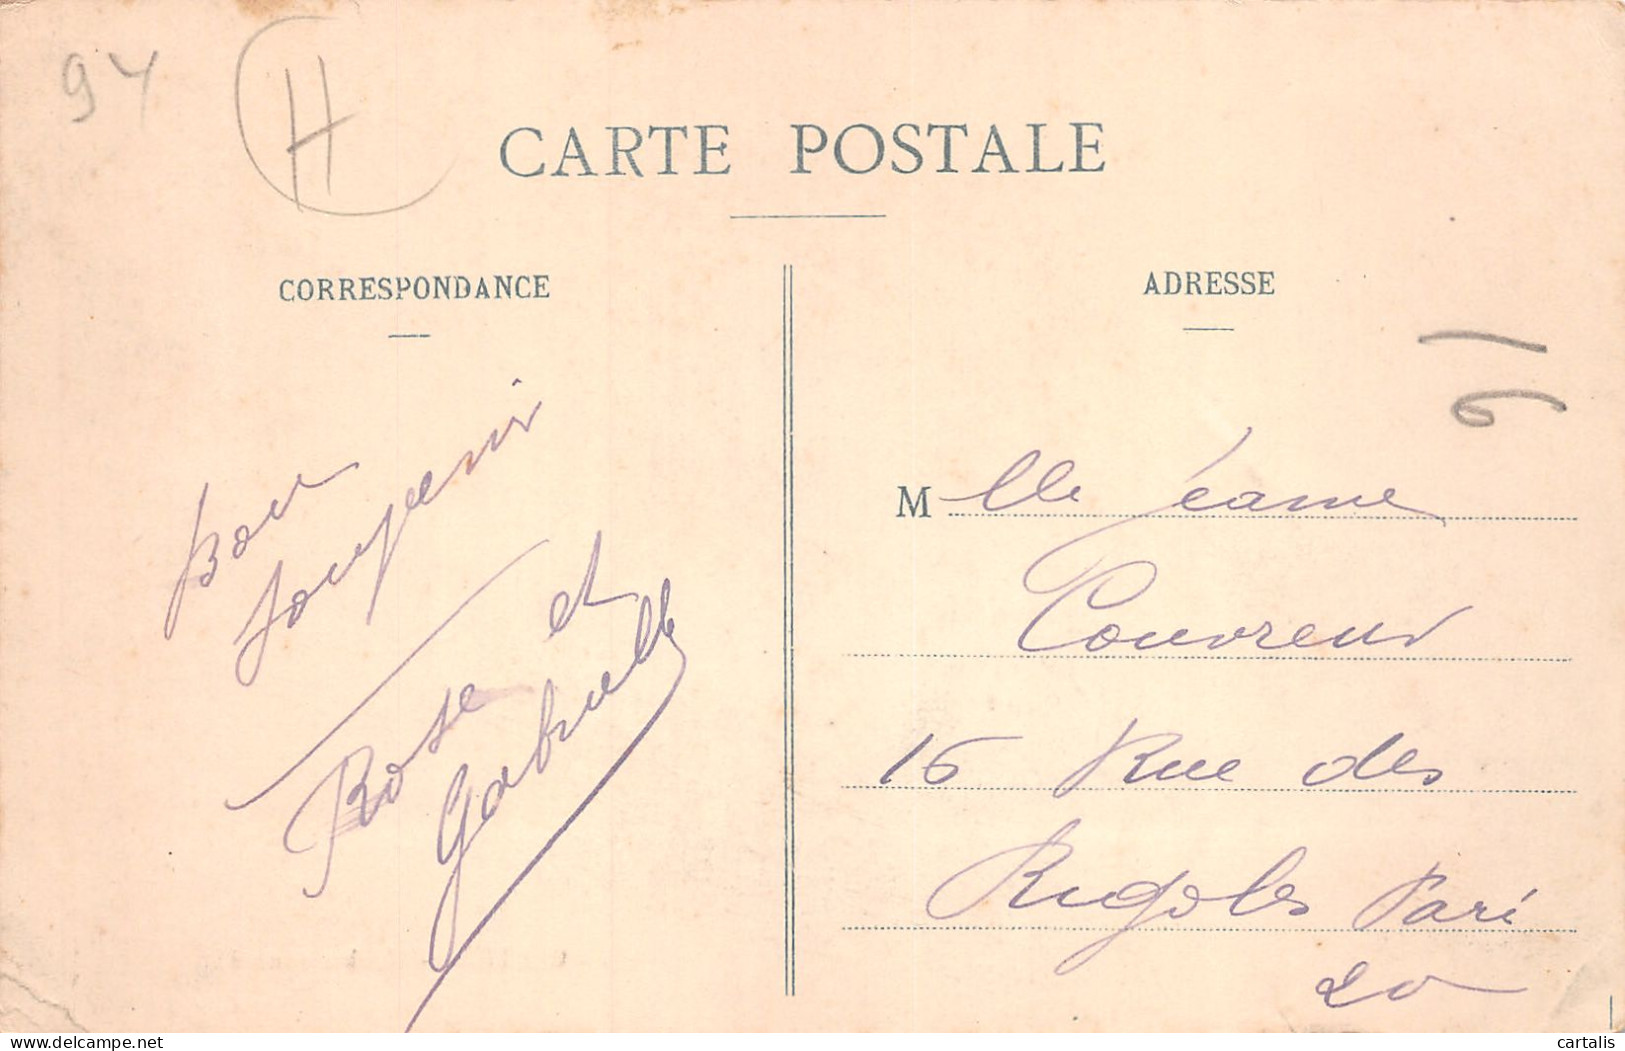 94
H
CARTE POSTALE
CORRESPONDANCE
Bon
souvenir
Rose et
Gabrielle
ADRESSE
16
Mlle Jeanne
Couvreur
16 Rue des
Rigoles Pari
20
delcampe.net
cartalis